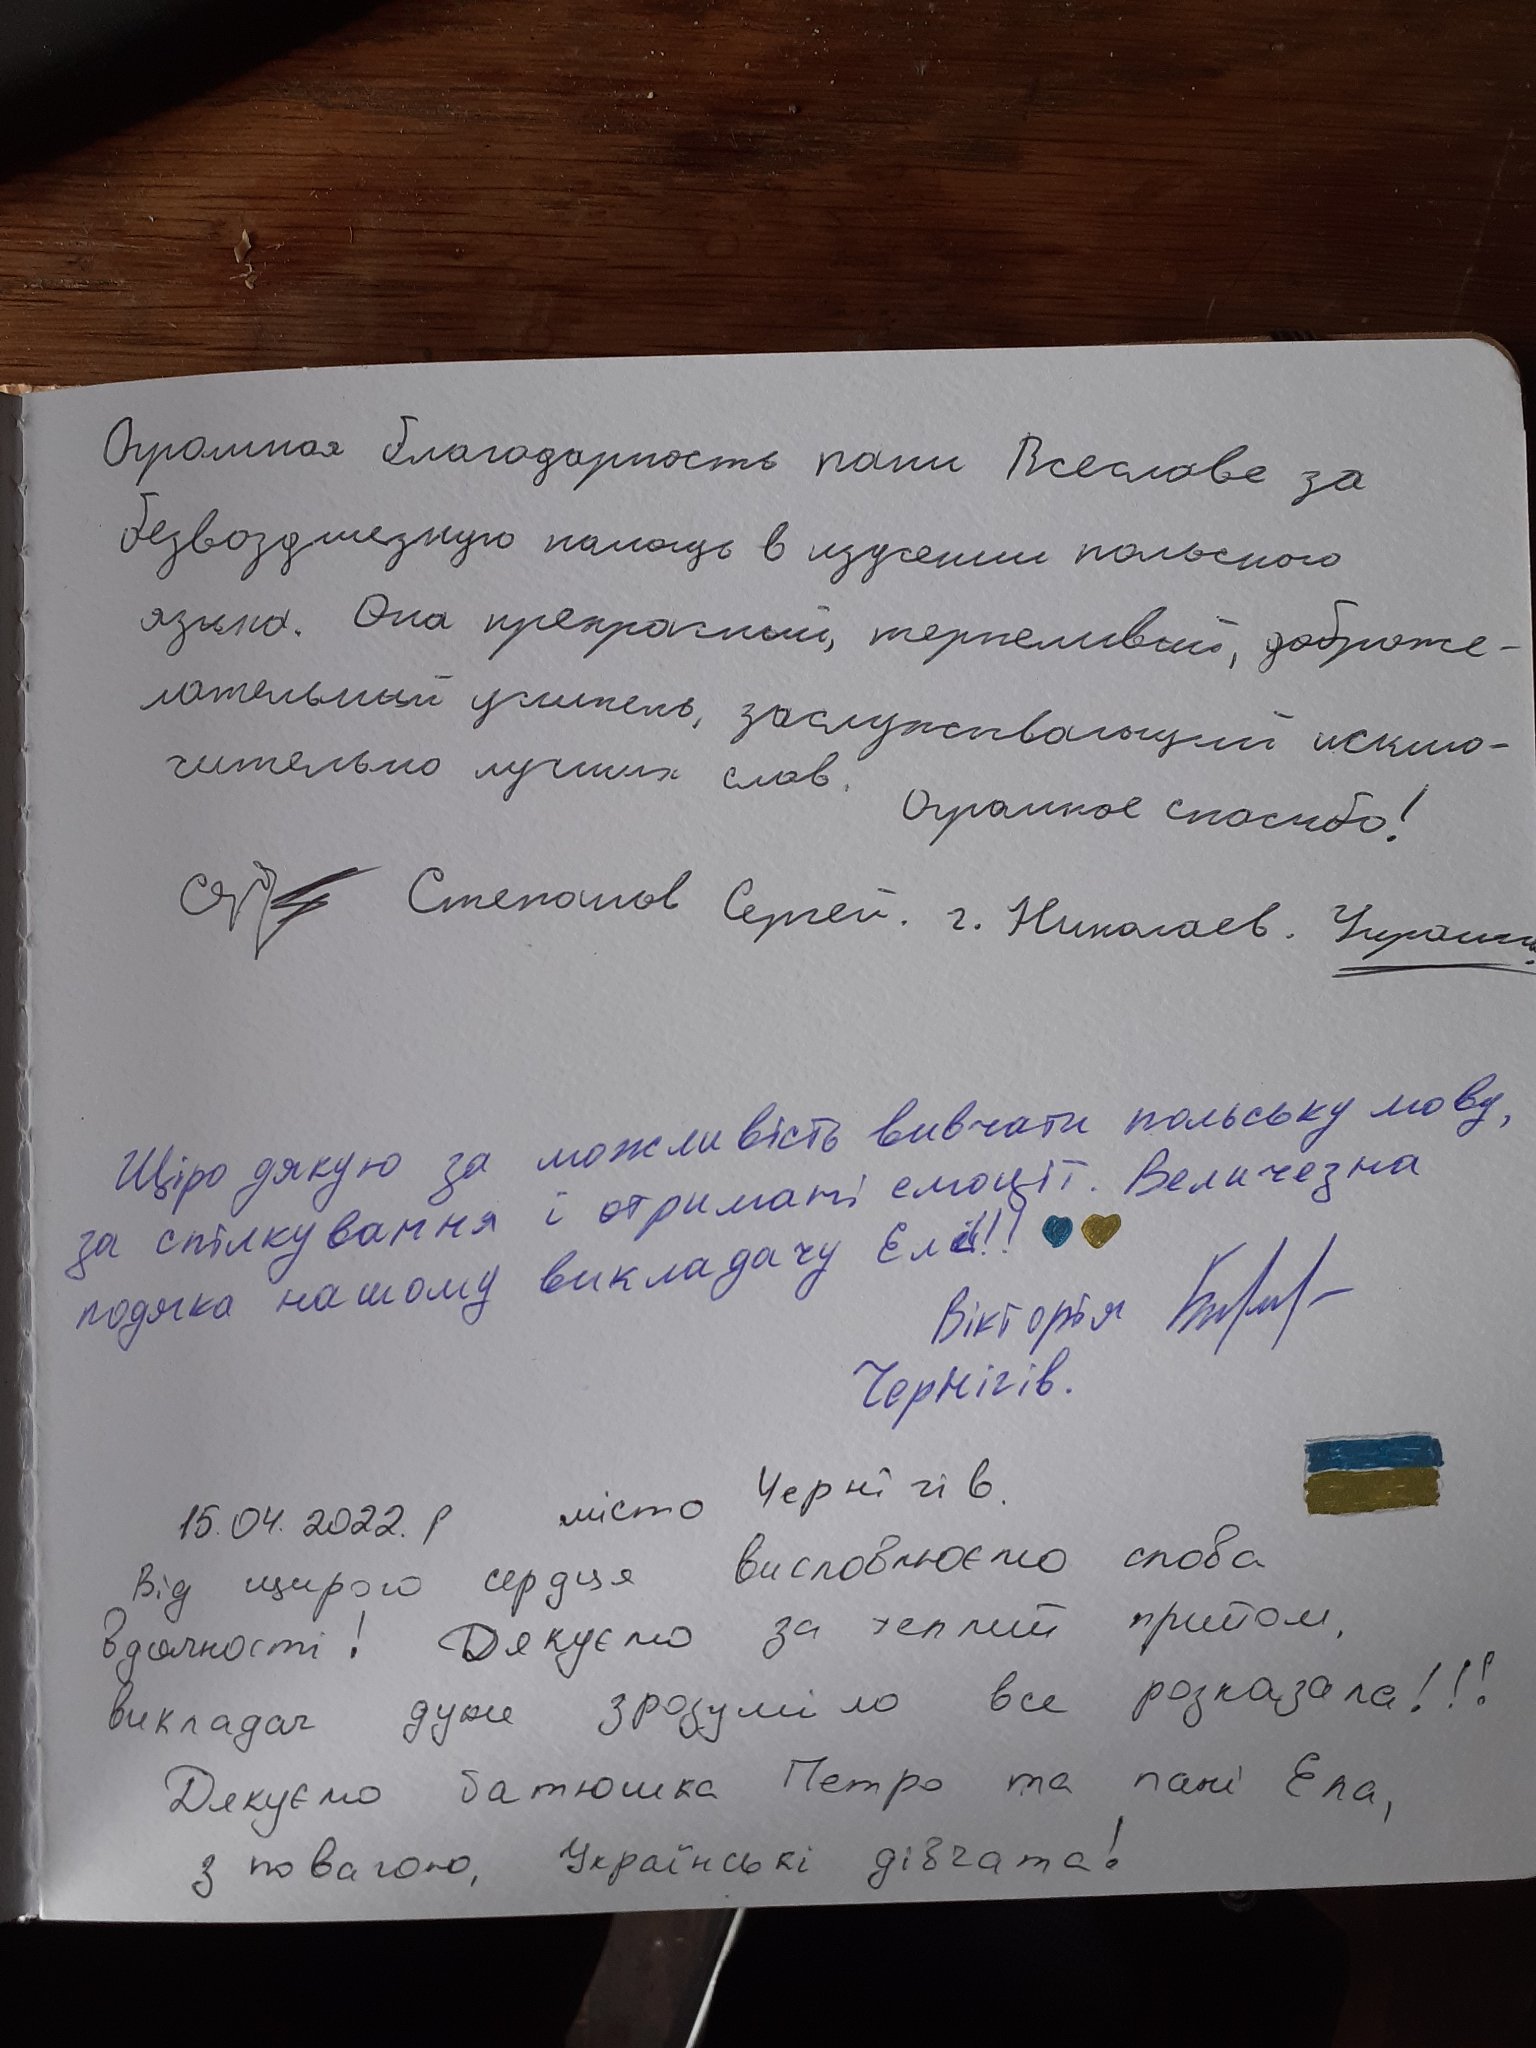 Огромная благодарность пани Всеславе за
безвоздмезную помощь в изучении польского
языка. Она прекрасный, терпеливый, доброже-
лательный учитель, заслуживающий исклю-
чительно лучших слов.
Огромное спасибо!
Степанов Сергей. г. Николаев. Украина
Щіро дякую за можливість вивчати польську мову,
за спілкування і отримані емоції. Величезна
подяка нашому викладачу Елі!!!
Вікторія
Чернігів.
15.04.2022. р місто Чернігів.
Від щирого сердця висловлюємо слова
вдячності! Дякуємо за теплий прийом,
викладач дуже зрозуміло все розказала!!!
Дякуємо батюшка Петро та пані Ела,
з повагою, Українські дівчата!